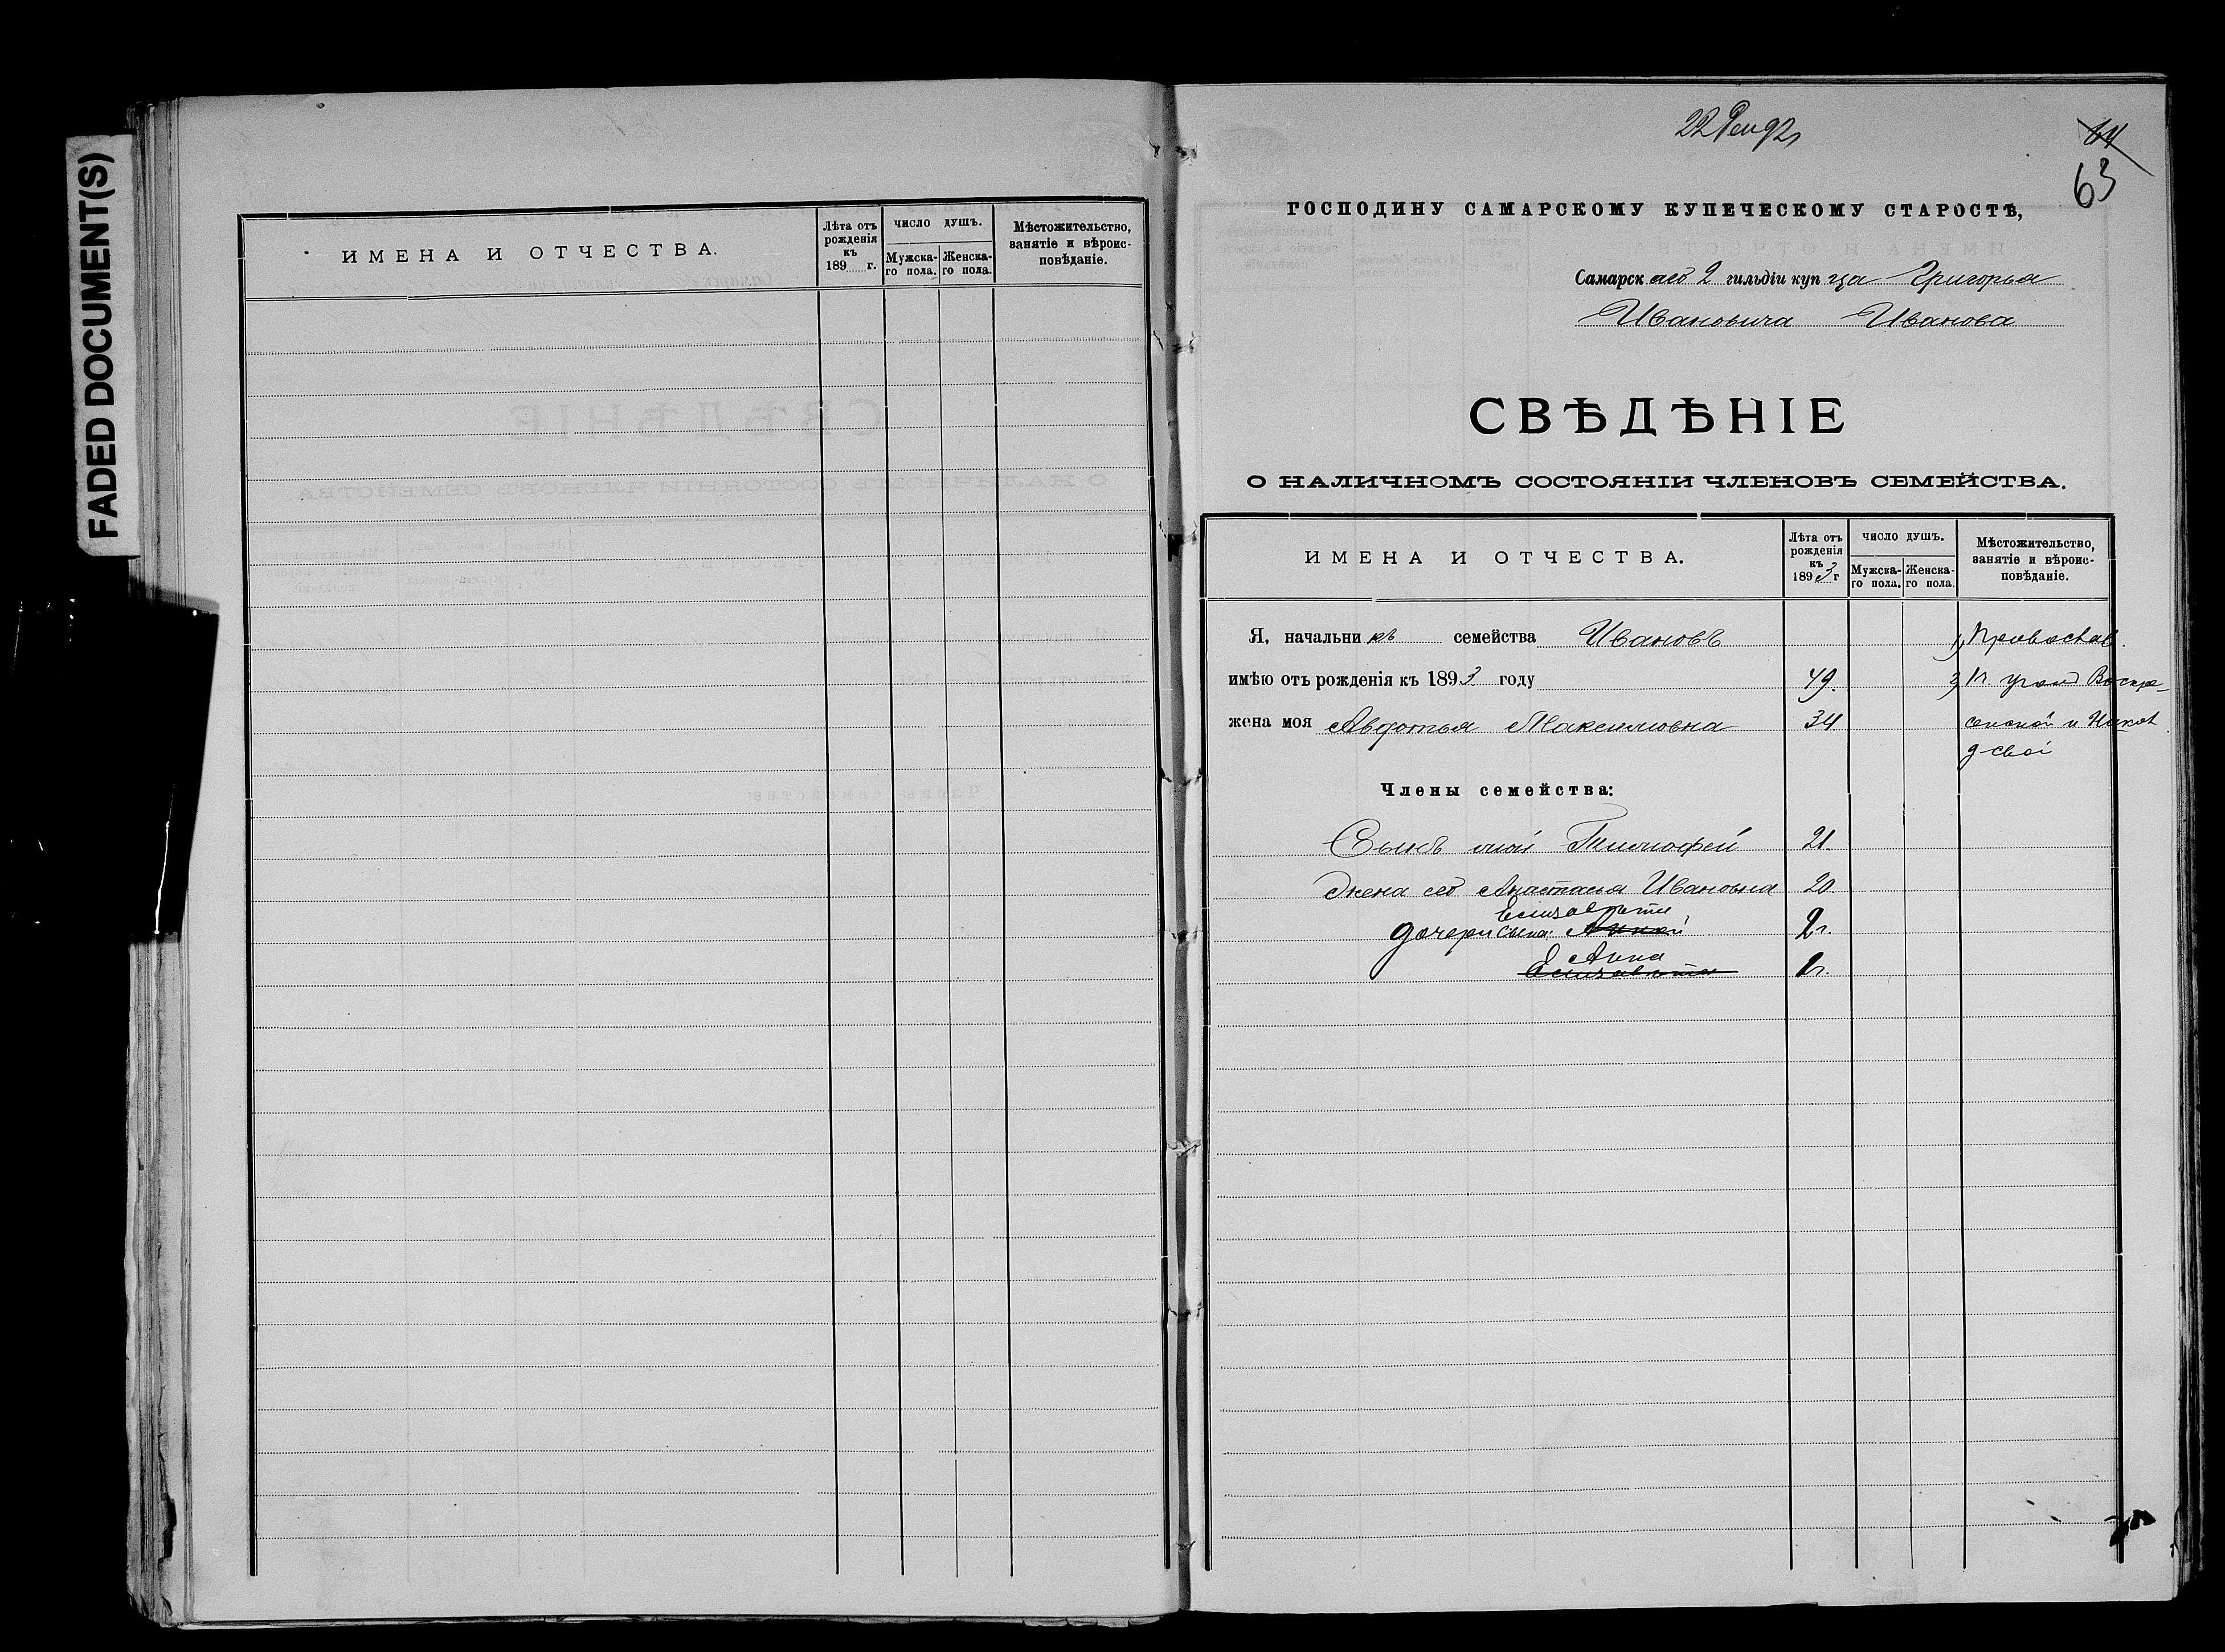 FADED DOCUMENT(S)
ИМЕНА И ОТЧЕСТВА.
Лѣта отъ рожденія къ 189 г.
ЧИСЛО ДУШЪ.
Мужска-го пола.
Женска-го пола.
Мѣстожительство, занятіе и вѣроис-повѣданіе.
22 92
64
63
ГОСПОДИНУ САМАРСКОМУ КУПЕЧЕСКОМУ СТАРОСТѢ,
Самарскаго 2 гильдіи купца Григорья
Ивановича Иванова
СВѢДѢНІЕ
О НАЛИЧНОМЪ СОСТОЯНІИ ЧЛЕНОВЪ СЕМЕЙСТВА.
ИМЕНА И ОТЧЕСТВА.
Лѣта отъ рожденія къ 1893 г
ЧИСЛО ДУШЪ.
Мужска-го пола.
Женска-го пола.
Мѣстожительство, занятіе и вѣроис-повѣданіе.
Я, начальникъ семейства Ивановъ 1) Православ.
имѣю отъ рожденія къ 1893 году 49. 3) уголъ Воскре-
жена моя Авдотья Максимовна 34 сенской и
Члены семейства:
Сынъ мой Тимофей 21.
Жена его Анастасья Ивановна 20.
Елизавета
дочери сына: Анна 2г.
Анна
Елизавета 1г.